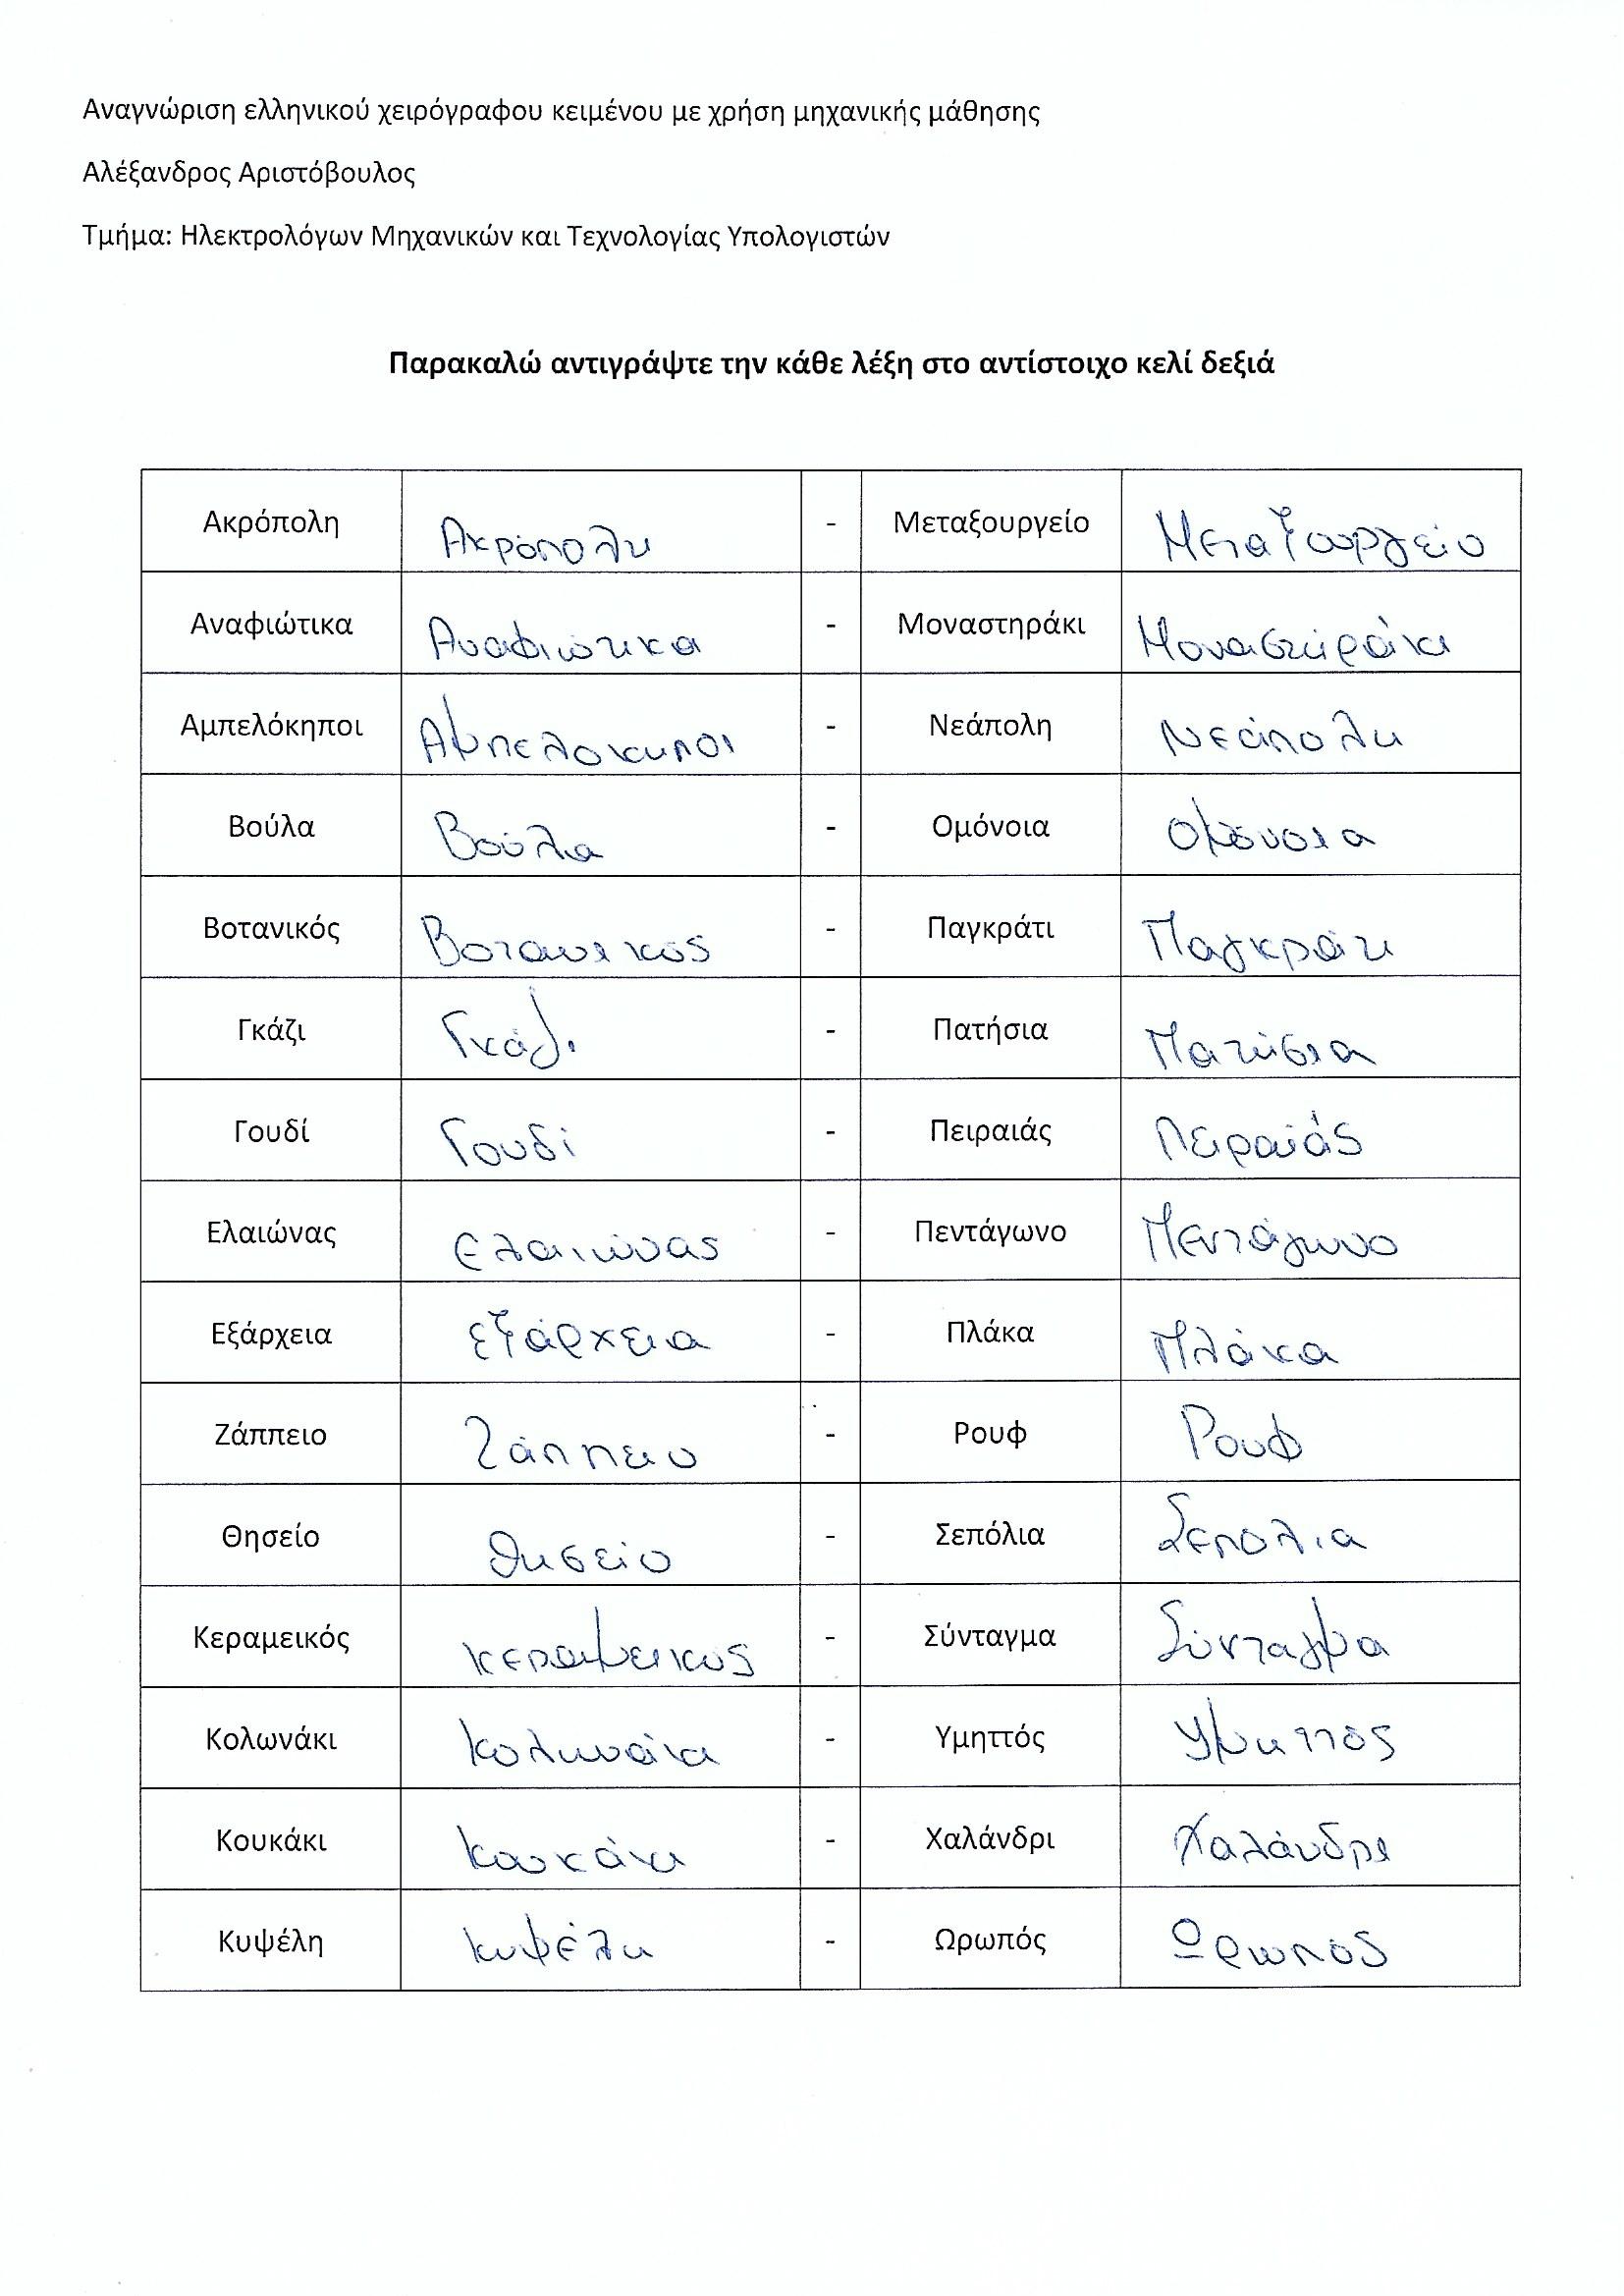 Αναγνώριση ελληνικού χειρόγραφου κειμένου με χρήση μηχανικής μάθησης
Αλέξανδρος Αριστόβουλος
Τμήμα: Ηλεκτρολόγων Μηχανικών και Τεχνολογίας Υπολογιστών
Παρακαλώ αντιγράψτε την κάθε λέξη στο αντίστοιχο κελί δεξιά
Ακρόπολη Ακρόπολη - Μεταξουργείο Μεταξουργείο
Αναφιώτικα Αναφιώτικα - Μοναστηράκι Μοναστηράκι
Αμπελόκηποι Αμπελοκηποι - Νεάπολη Νεάπολη
Βούλα Βούλα - Ομόνοια Ομόνοια
Βοτανικός Βοτανικός - Παγκράτι Παγκράτι
Γκάζι Γκάζι - Πατήσια Πατήσια
Γουδί Γουδί - Πειραιάς Πειραιάς
Ελαιώνας Ελαιώνας - Πεντάγωνο Πεντάγωνο
Εξάρχεια Εξάρχεια - Πλάκα Πλάκα
Ζάππειο Ζάππειο - Ρουφ Ρουφ
Θησείο Θησείο - Σεπόλια Σεπόλια
Κεραμεικός Κεραμεικός - Σύνταγμα Σύνταγμα
Κολωνάκι Κολωνάκι - Υμηττός Υμηττός
Κουκάκι Κουκάκι - Χαλάνδρι Χαλάνδρι
Κυψέλη Κυψέλη - Ωρωπός Ωρωπός